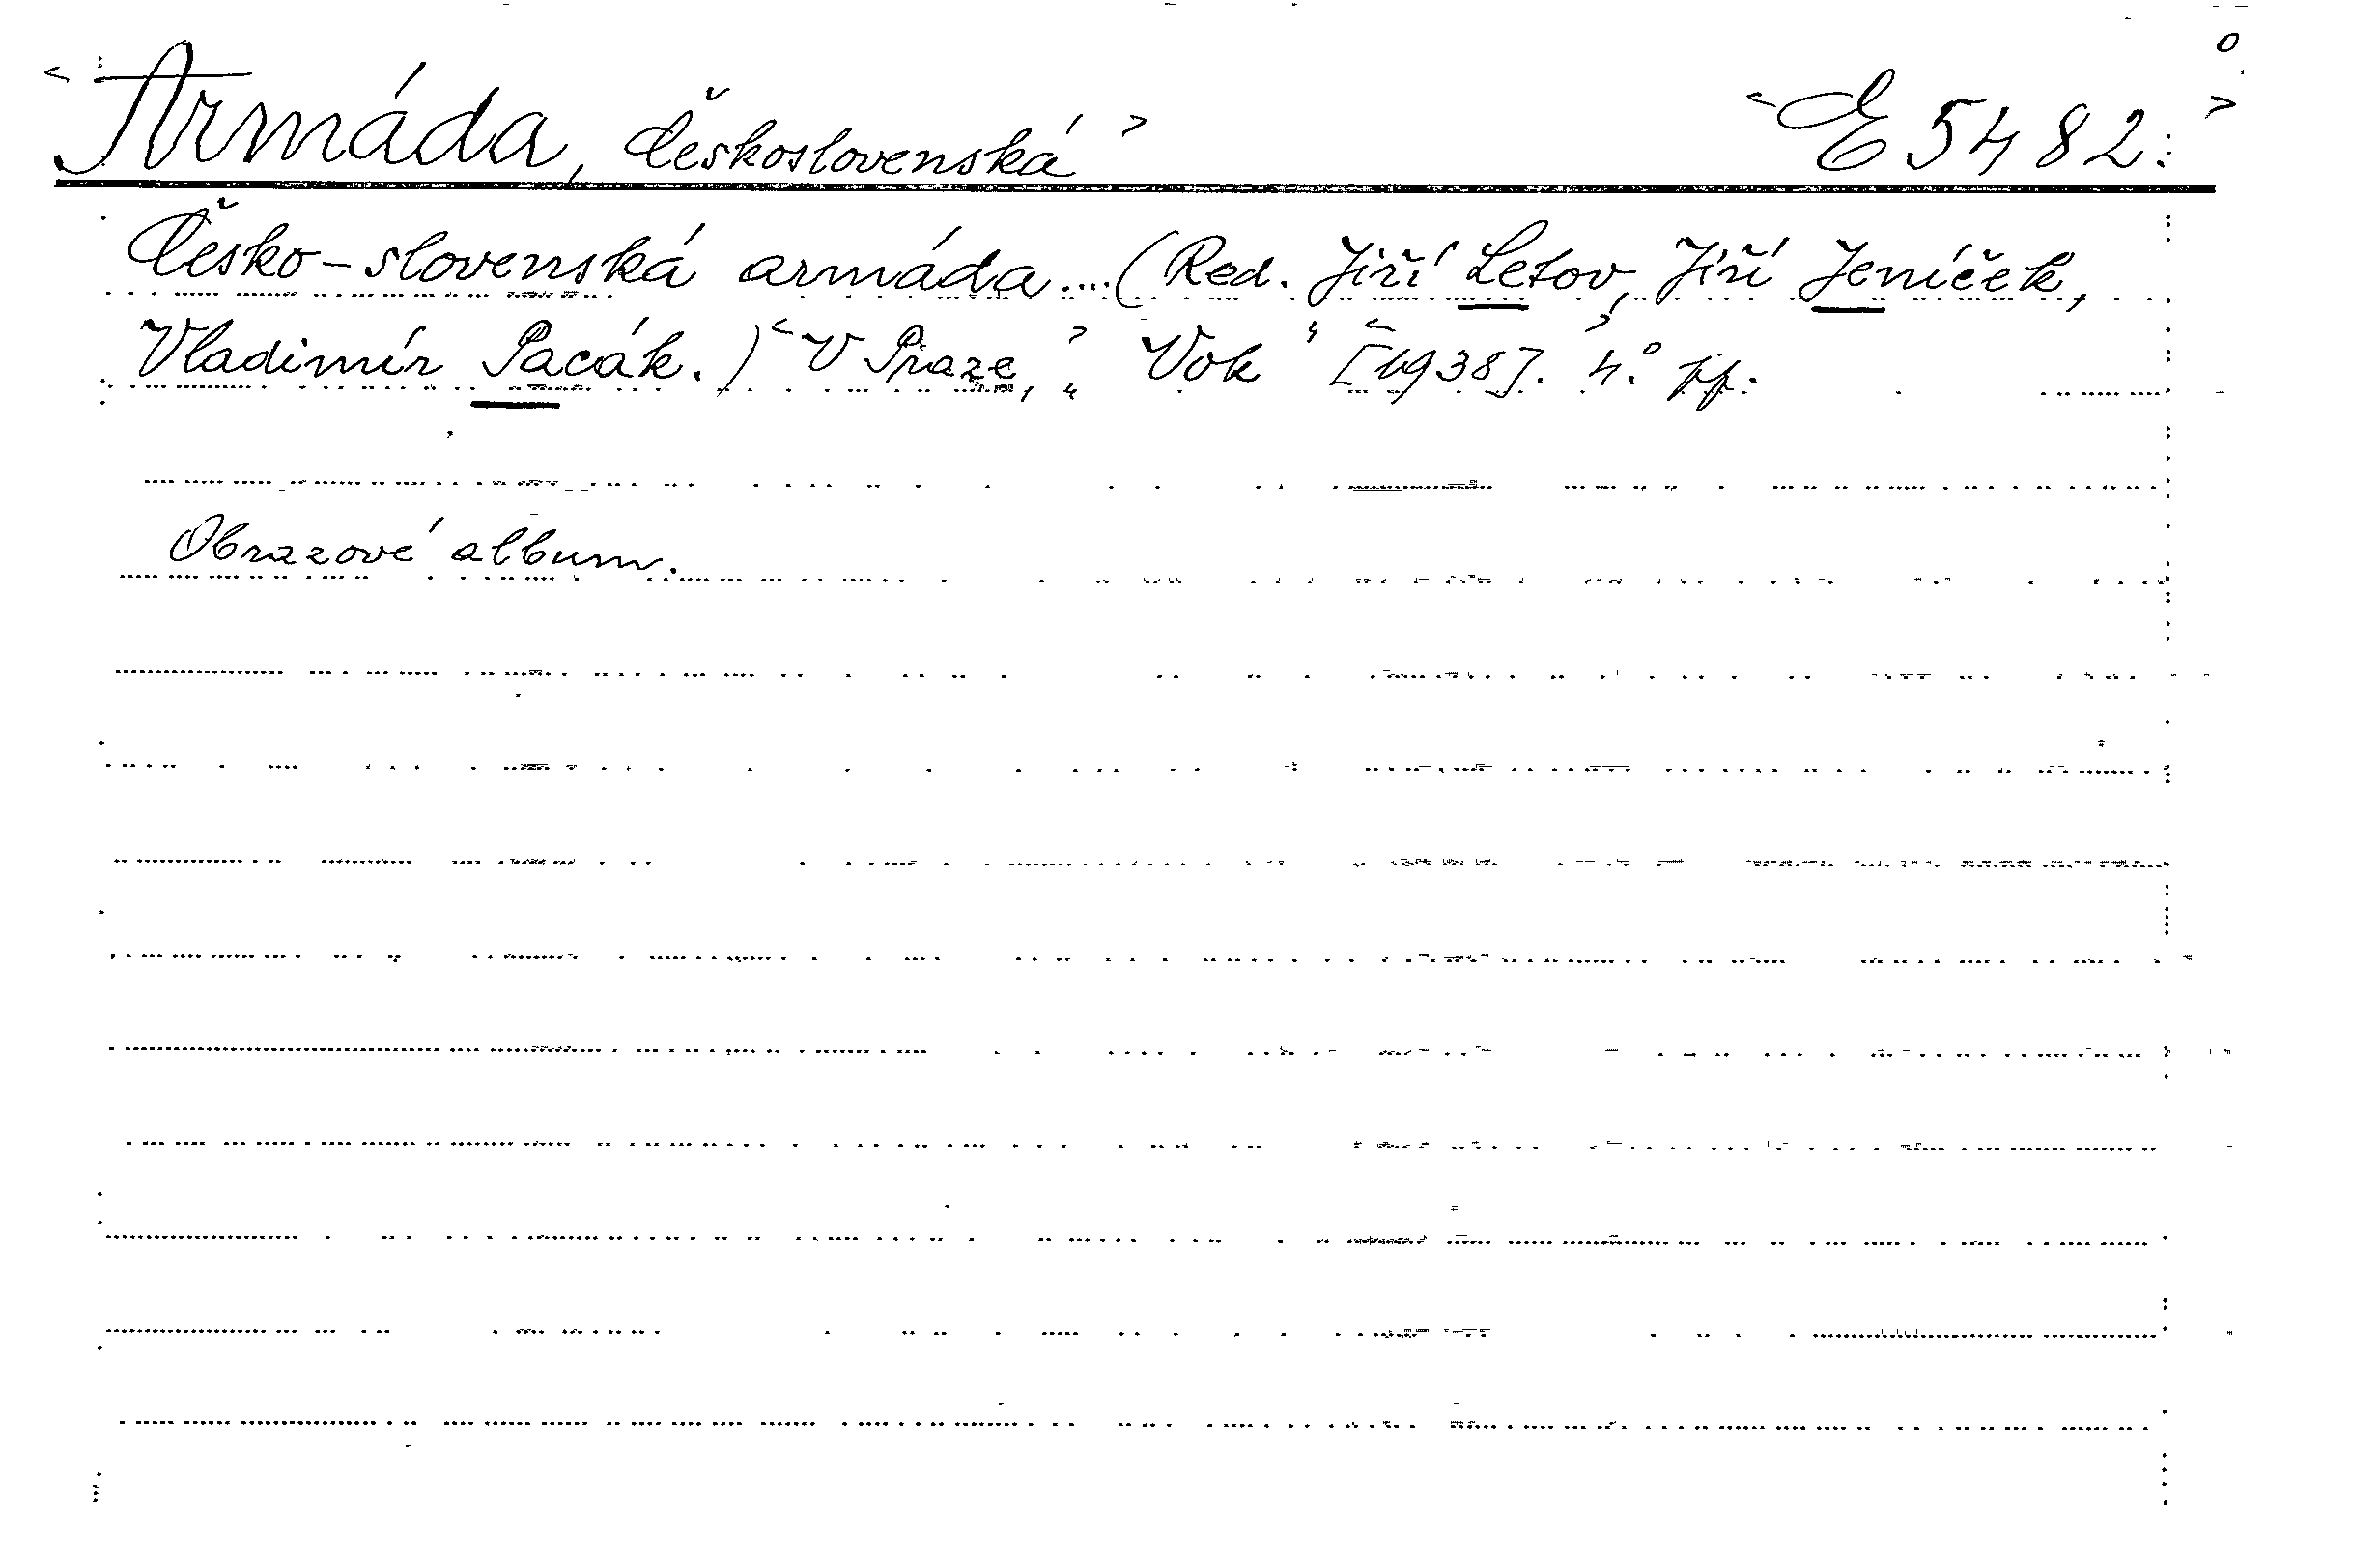 Armáda, Československá E 5482.
Česko-slovenská armáda....(Red. Jiří Letov, Jiří Jeníček,
Vladimír Pacák.) V Praze, "Vok" [1938]. 4.° pp.
Obrazové album.